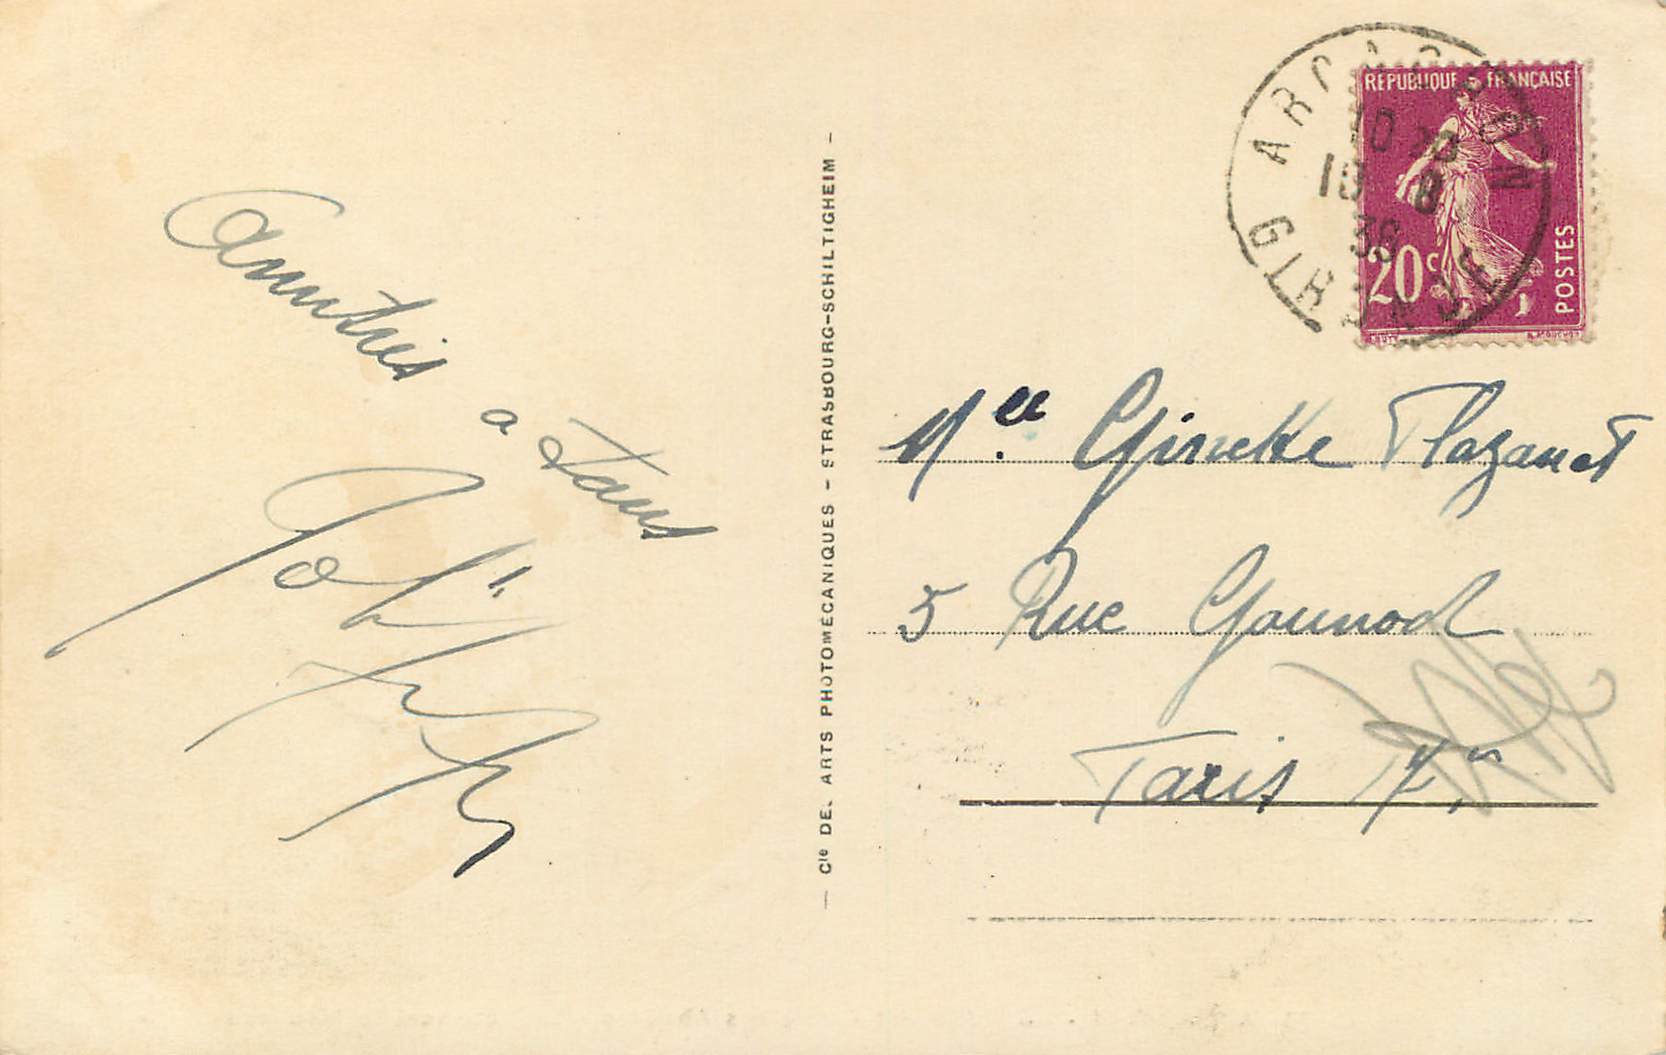 Amitiés
a tous
— Cie DES ARTS PHOTOMECANIQUES - STRASBOURG-SCHILTIGHEIM —
ARCACHON
GIRONDE
10 20
10 8
36
REPUBLIQUE FRANÇAISE
20c
POSTES
Melle Ginette Plazanet
5 Rue Gounod
Paris 17